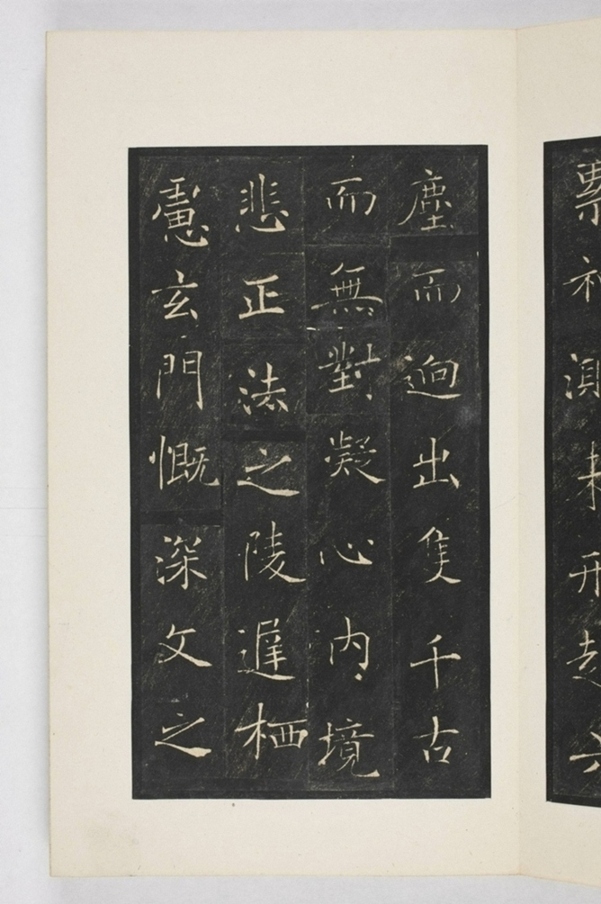 塵而迥出隻千古
而無對凝心內境
悲正法之陵遲栖
慮玄門慨深文之